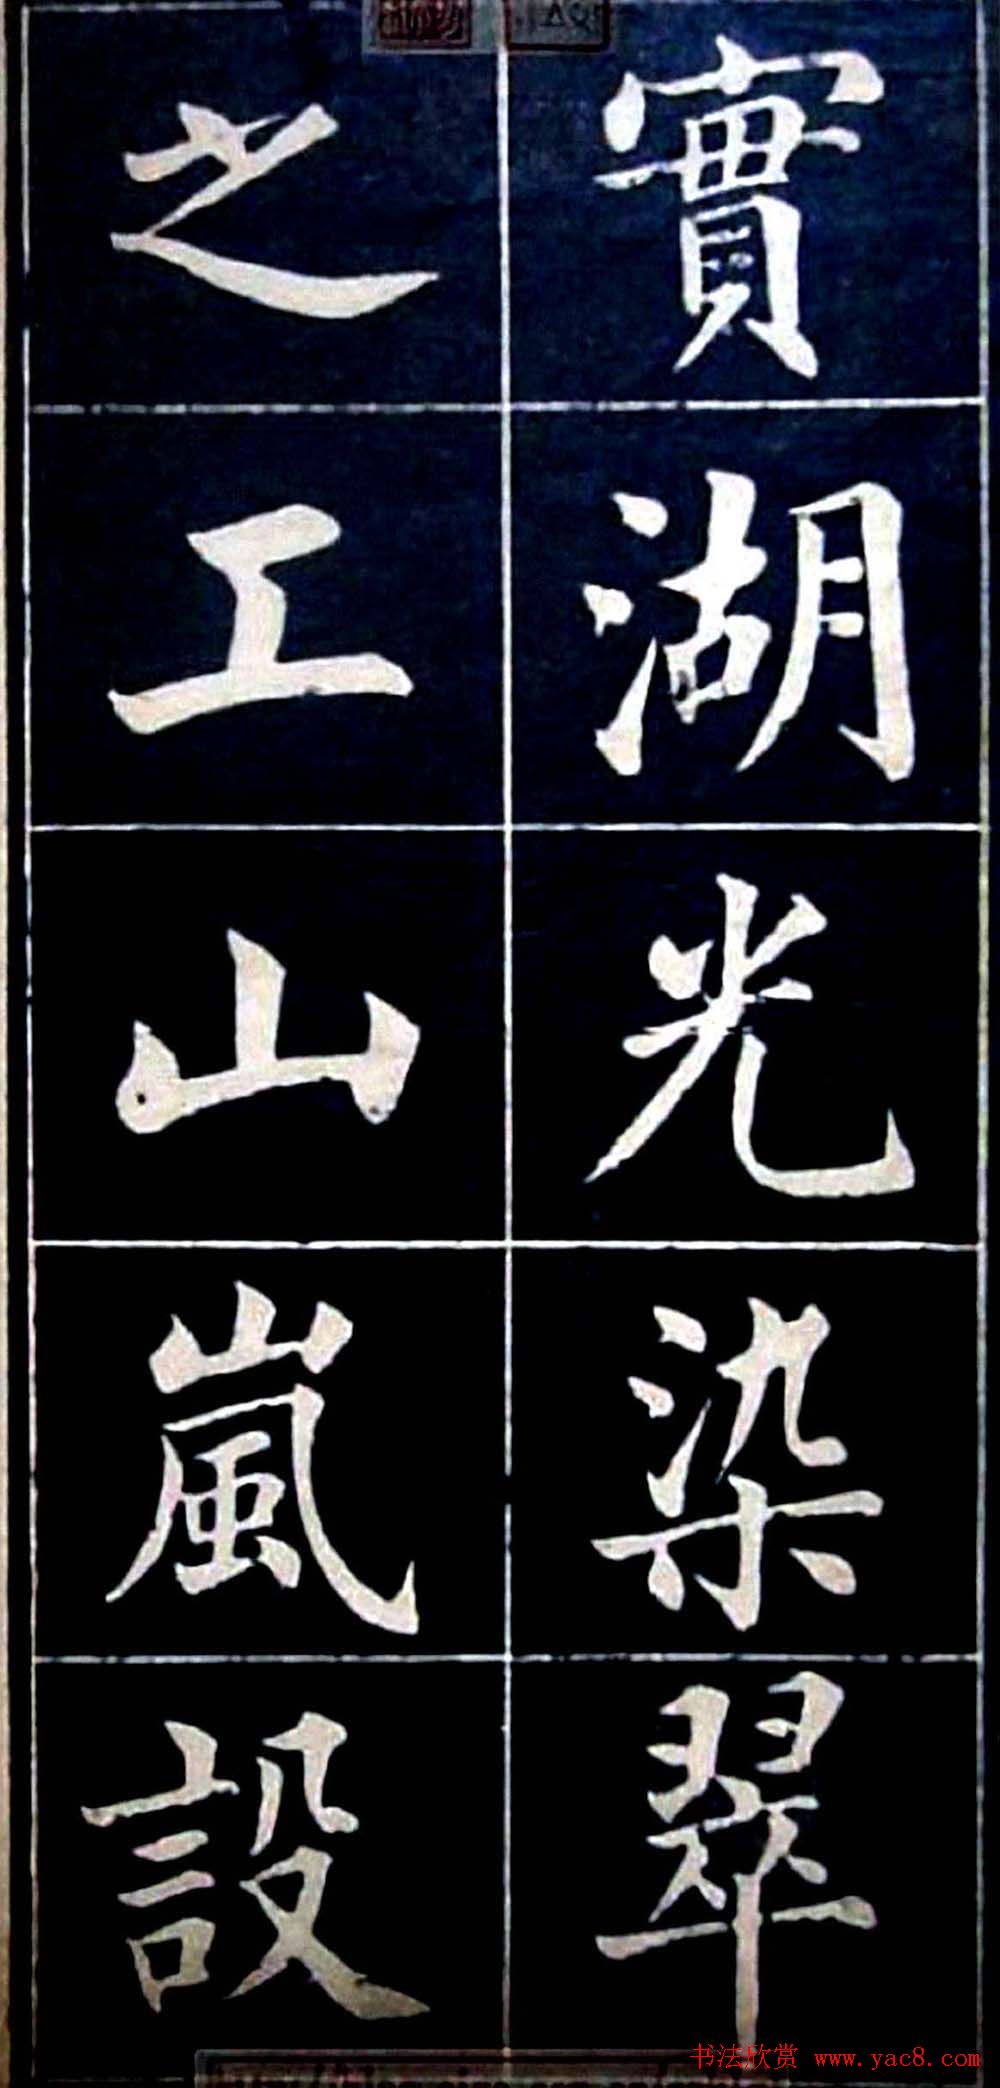 實湖光染翠
之工山嵐設
书法欣赏 www.yac8.com